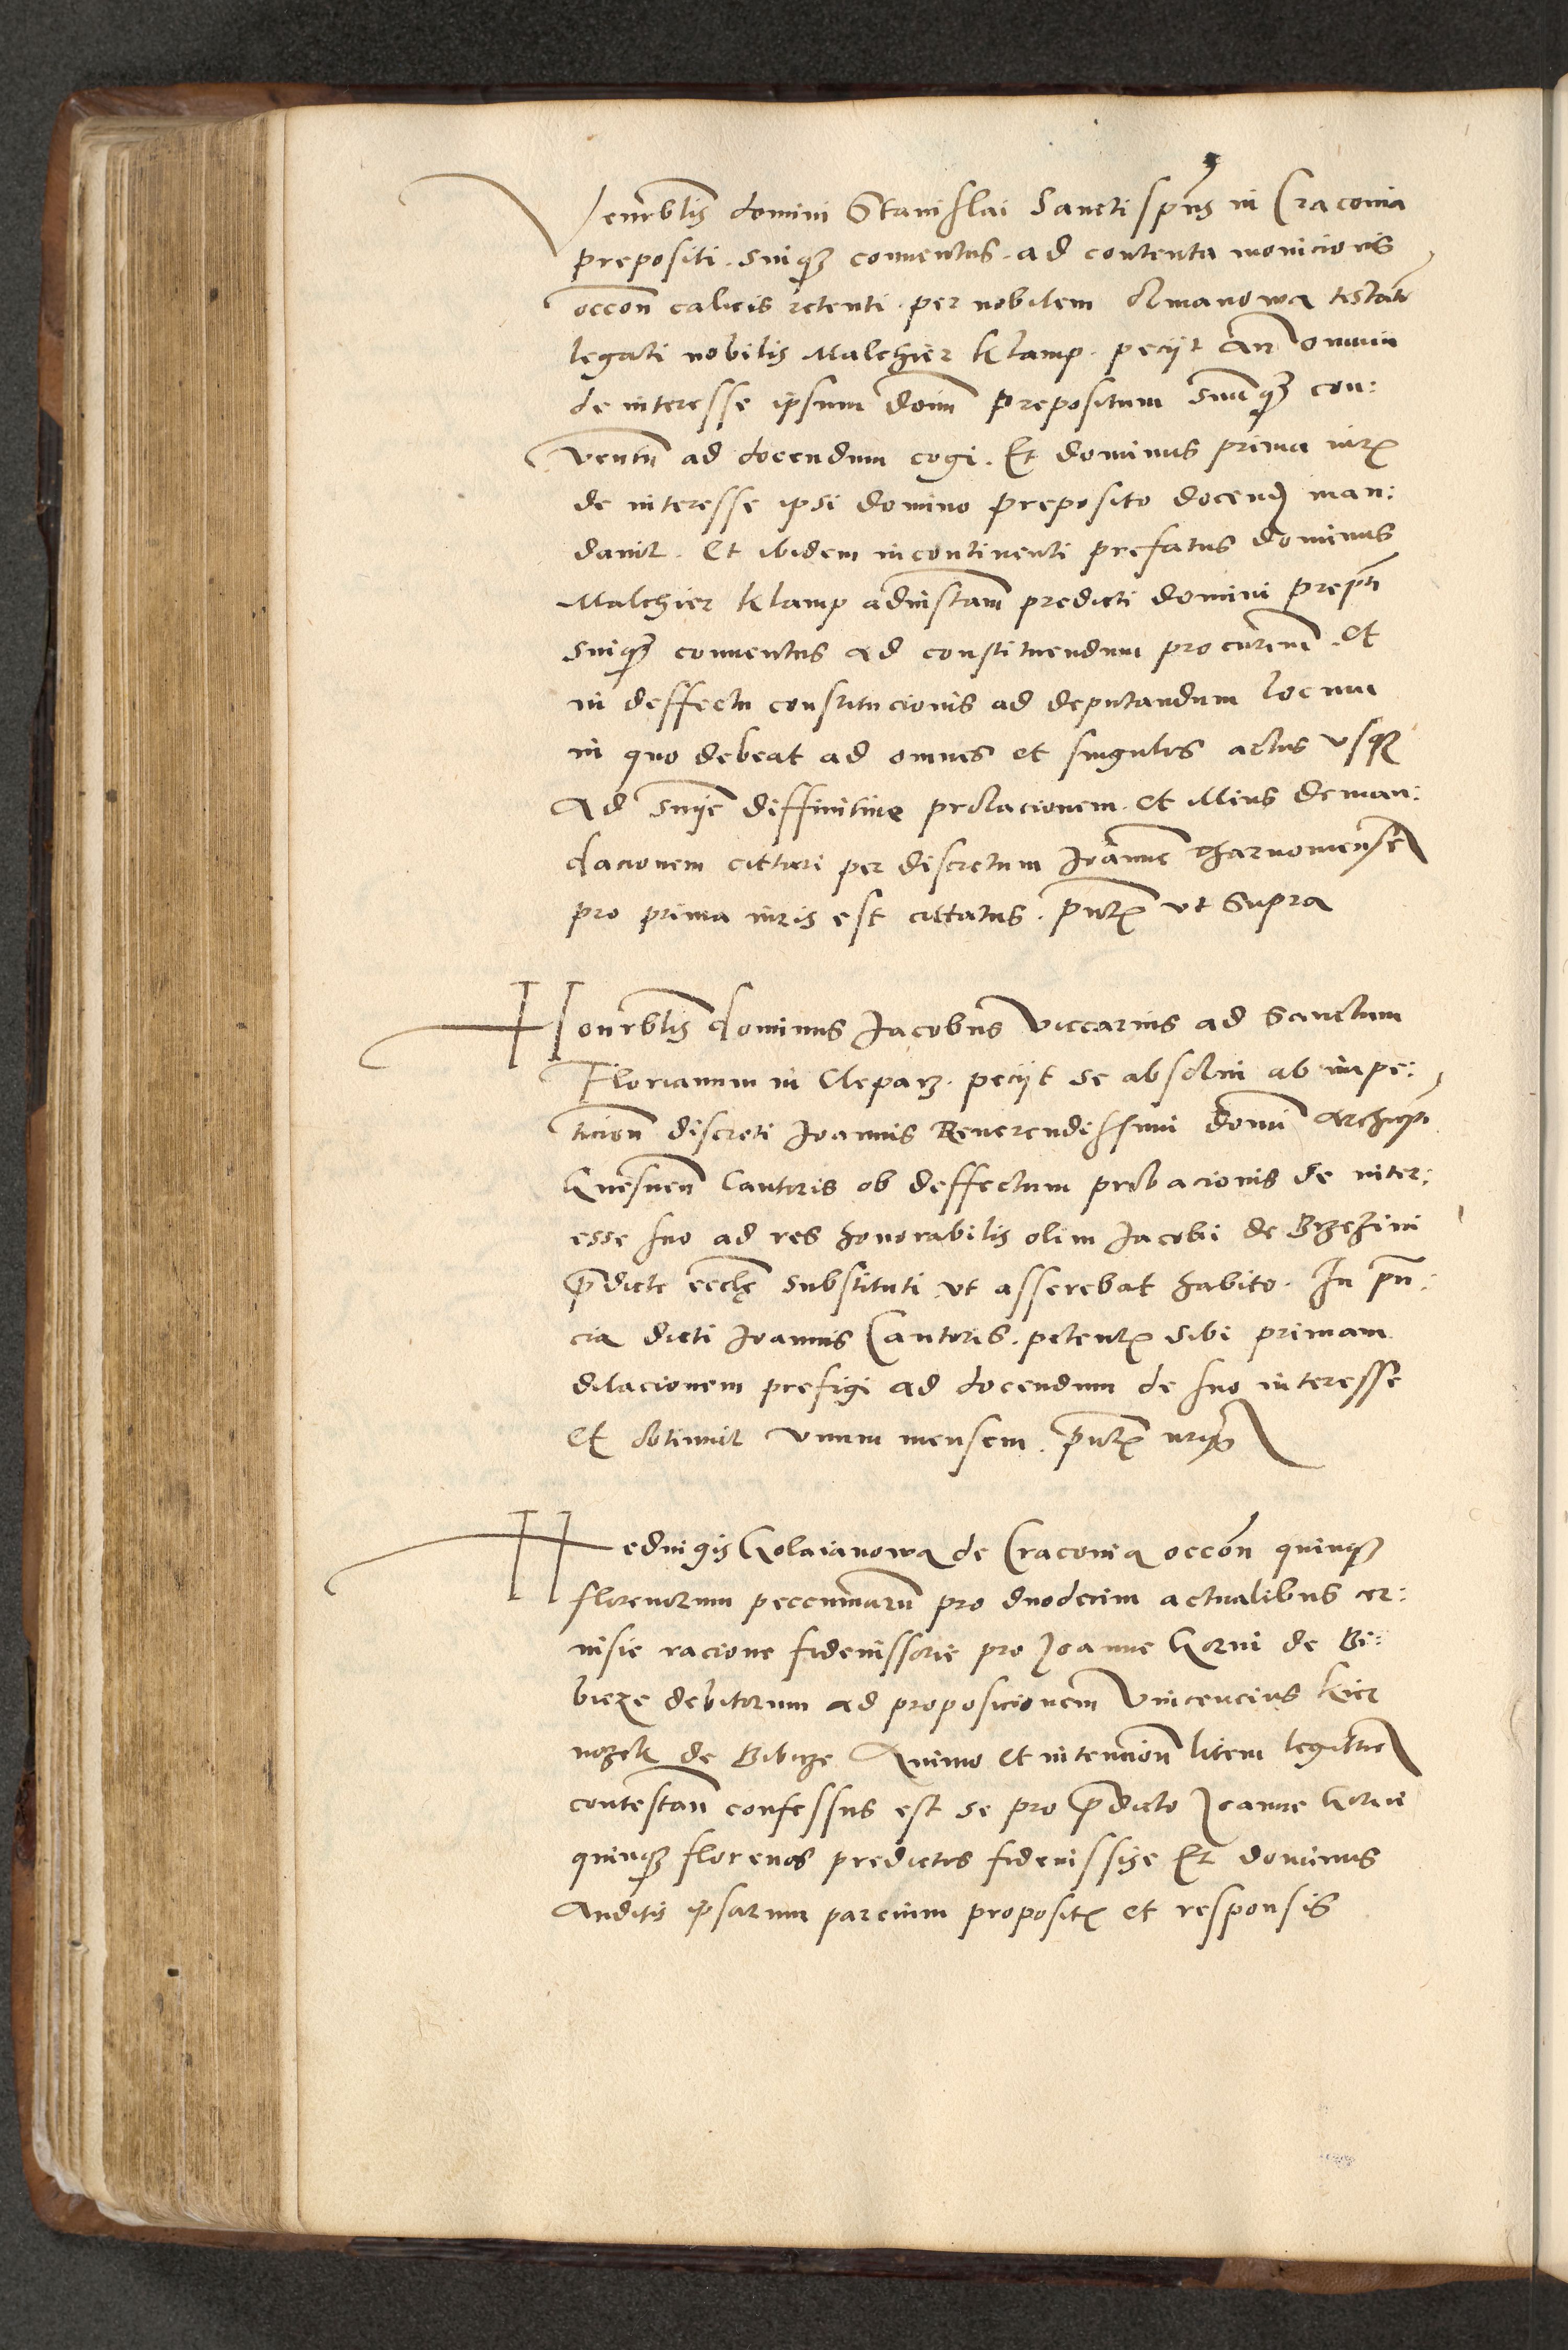 Venerblis domini Stanislai Sancti spūs in Craconia
prepositi. suiqȝ conuentus. ad contenta monicionis
occōn calicis retenti. per nobilem Olmanowa testām̄
legati nobilis Malchier Klamp. peciit an̄ omnia
de interesse ipsum dom̄ prepositum suūqȝ con:
ventū ad docendum cogi. Et dominus prima iur
de interesse ipsi domino preposito docend man:
dauit. Et ibidem incontinenti prefatus dominus
Malchier Klamp adinstam̄ predicti domini prepti
suiqȝ conuentus ad constituendum procurem̄. Et
in deffectu constitucionis ad deputandum locum
in quo debeat ad omnes et singulos actus vsqȝ
ad snīe diffinitiue prolacionem. et illius deman:
dacionem cittari per discretum Joannē
pro prima iuris est cittatus. pn̄t vt supra
Honorblis dominus Jacobus viccarius ad Sanctum
Florianum in Cleparz. peciit se absolui ab impe:
ticiōn discreti Joannis Reuerendissimi domī Archiepī
Gnesnen̄ Cantoris ob deffectum probacionis de inter:
esse suo ad res honorabilis olim Jacobi de Brzezini
p̄dicte eccłę substituti vt asserebat habito. In pn̄:
cia dicti Joannis Cantoris. petent sibi primam
dilacionem prefigi ad docendum de suo interesse
et obtinuit vnum mensem. pn̄t
Heduigis Golaianowa de Craconia occōn quinqȝ
florenorum peccuniarū pro duodecim actualibus cer:
uisie racione fideiussorie pro Joanne Gorni de Bi:
bicze debitorum ad proposicionem Vincencius Kier
nozek de Bibicze Animo et intenciōn litem legittīe
contestan̄ confessus est se pro p̄dicto Joanne Gorni
quinqȝ florenos predictos fideiussisse Et dominus
Auditis ipsarum parcium proposit et responsis